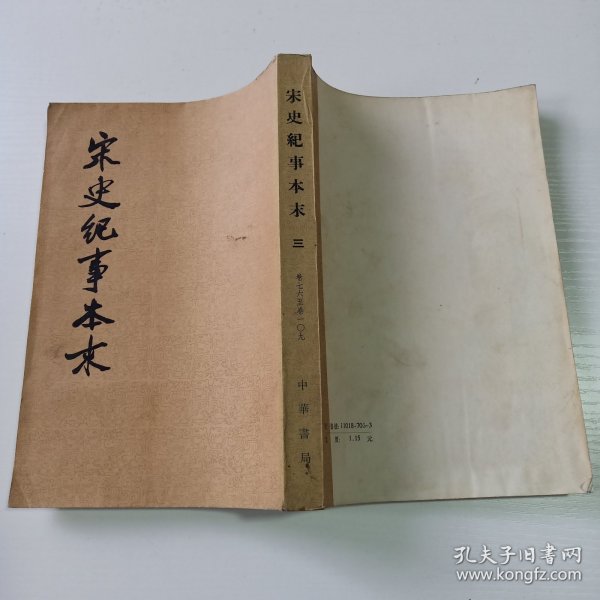 宋史纪事本末
宋史紀事本末
三
卷七六至卷一〇九
中華書局
11018·706-3
1.15 元
孔夫子旧书网
www.kongfz.com